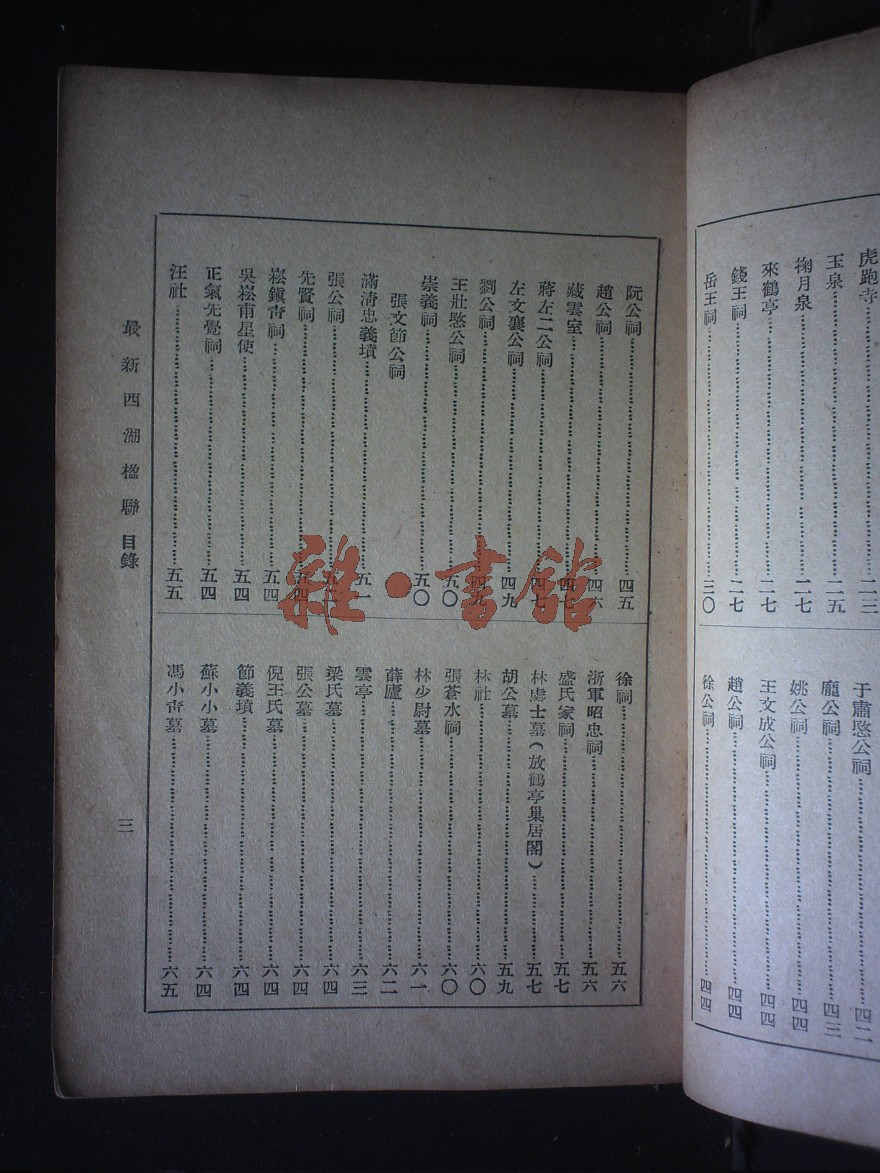 虎跑寺……二三
玉泉……二五
掬月泉……二七
來鶴亭……二七
錢王祠……二七
岳王祠……三〇
于肅愍公祠……四二
龐公祠……四三
姚公祠……四四
王文成公祠……四四
趙公祠……四四
徐公祠……四四
阮公祠……四五
趙公祠……四六
藏雲室……四七
蔣左二公祠……四七
左文襄公祠……四九
劉公祠……四九
王壯愍公祠……五〇
崇義祠……五〇
張文節公祠
滿清忠義墳……五一
張公祠……五二
先賢祠……五四
崧鎮青祠……五四
吳崧甫星使……五四
正氣先覺祠……五四
汪社……五五
徐祠……五六
浙軍昭忠祠……五六
盛氏家祠……五七
林處士墓（放鶴亭巢居閣）……五七
胡公墓……五九
林社……六〇
張蒼水祠……六〇
林少尉墓……六一
薛廬……六二
雲亭……六三
梁氏墓……六四
張公墓……六四
倪王氏墓……六四
節義墳……六四
蘇小小墓……六四
馮小青墓……六五
最新西湖楹聯 目錄
三
雜·書館